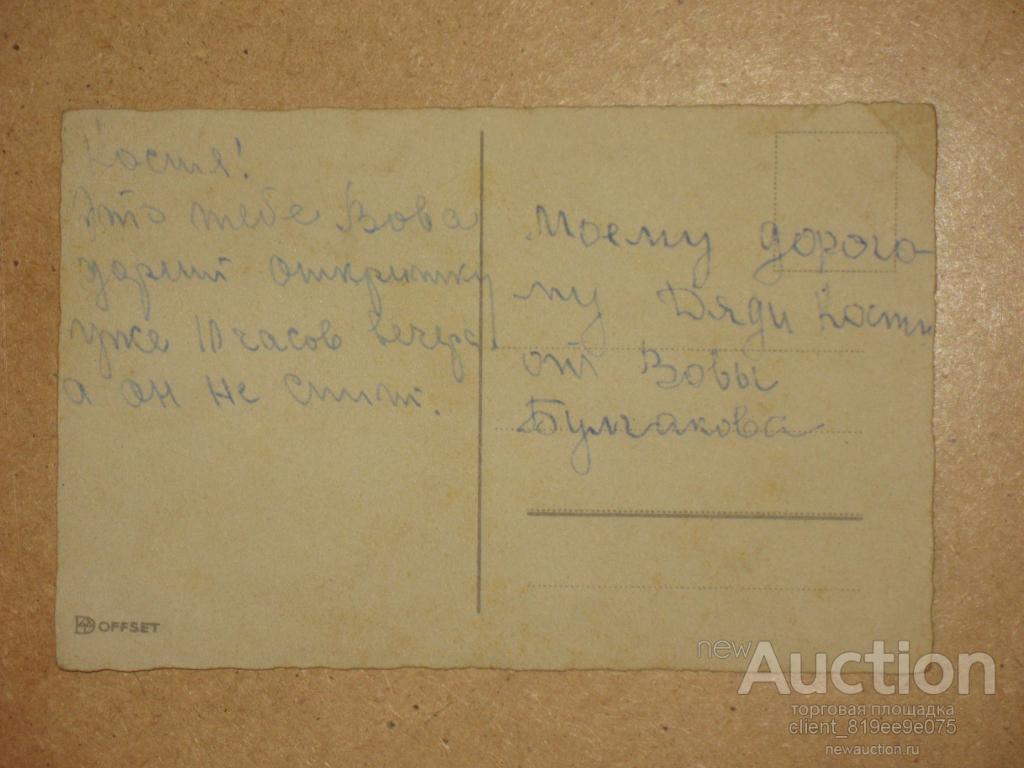 Костя!
Это тебе Вова
дарит открытку
уже 10 часов вечера
а он не спит.
Моему дорого-
му Дяди Кости
от Вовы
Булгакова
OFFSET
newAuction
торговая площадка
client_819ee9e075
newauction.ru